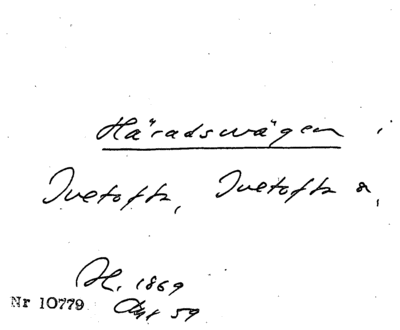 Häradsvägen i
Ivetofta, Ivetofta s,
H. 1869
Nr 10779 Akt 59